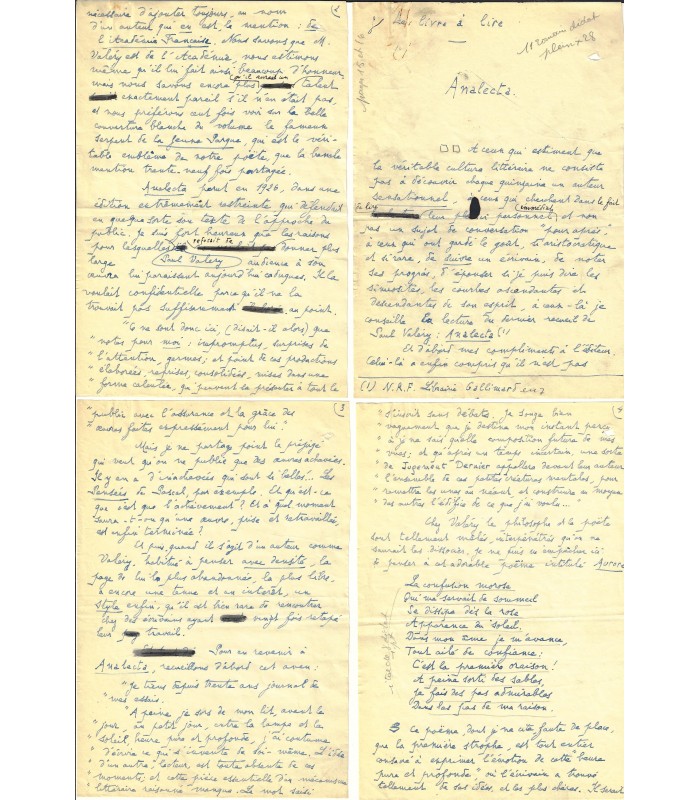 Un livre à lire
Analecta.
A ceux qui estiment que
la véritable culture littéraire ne consiste
pas à découvrir chaque quinzaine un auteur
sensationnel, à ceux qui cherchent dans le fait
de lire leur personnel et non
pas un sujet de conversation "pour après",
à ceux qui ont gardé le goût, si aristocratique
et si rare, de suivre un écrivain, de noter
ses progrès, d'épouser si je puis dire les
sinuosités, les courbes ascendantes et
descendantes de son esprit, à ceux-là je
conseille la lecture du dernier recueil de
Paul Valéry : Analecta (1)
Et d'abord mes compliments à l'éditeur.
Celui-là a enfin compris qu'il n'est pas
(1) N.R.F. Librairie Gallimard
2
nécessaire d'ajouter toujours, au nom
d'un auteur qui en est, la mention : de
l'Académie Française. Nous savons que M.
Valéry est de l'Académie, nous estimons
même qu'il lui fait ainsi beaucoup d'honneur,
mais nous savons encore plus qu'il aurait un talent
exactement pareil s'il n'en était pas,
et nous préférons cent fois voir sur la belle
couverture blanche du volume le fameux
serpent de la Jeune Parque, qui est le véri-
table emblème de notre poète, que la banale
mention trente-neuf fois partagée.
Analecta parut en 1926, dans une
édition extrêmement restreinte qui défendait
en quelque sorte son texte de l'approche du
public. Je suis fort heureux que les raisons
pour lesquelles Paul Valéry refusait de donner plus
large audience à son
œuvre lui paraissent aujourd'hui caduques. Il la
voulait confidentielle parce qu'il ne la
trouvait pas suffisamment au point.
"Ce ne sont donc ici, (disait-il alors) que
"notes pour moi : impromptus, surprises de
"l'attention, germes ; et point de ces productions
"élaborées, reprises, consolidées, mises dans une
"forme calculée, qui peuvent se présenter à tout le
3
"public avec l'assurance et la grâce des
"œuvres faites expressément pour lui."
Mais je ne partage point le préjugé
qui veut qu'on ne publie que des œuvres achevées.
Il y en a d'inachevées qui sont si belles!... Les
Pensées de Pascal, par exemple. Et qu'est-ce
que c'est que l'achèvement? Et à quel moment
saura-t-on qu'une œuvre, prise et retravaillée,
est enfin terminée?
Et puis, quand il s'agit d'un auteur comme
Valéry, habitué à penser avec densité, la
page de lui la plus abandonnée, la plus libre,
a encore une tenue et un intérêt, un
style enfin, qu'il est bien rare de rencontrer
chez des écrivains ayant vingt fois retapé
leur travail.
Pour en revenir à
Analecta, recueillons d'abord cet aveu :
"Je tiens depuis trente ans journal de
"mes essais.
"A peine je sors de mon lit, avant le
"jour, au petit jour, entre la lampe et le
"soleil, heure pure et profonde, j'ai coutume
"d'écrire ce qui s'invente de soi-même. L'idée
"d'un autre lecteur est toute absente de ces
"moments ; et cette pièce essentielle d'un mécanisme
"littéraire raisonné manque. Le mot saisi
4
"s'inscrit sans débats. Je songe bien
"vaguement que je destine mon instant perçu
"à je ne sais quelle composition future de mes
"vues ; et qu'après un temps incertain, une sorte
"de Jugement Dernier appellera devant leur auteur
"l'ensemble de ces petites créatures mentales, pour
"remettre les unes au néant, et construire au moyen
"des autres l'édifice de ce que j'ai voulu..."
Chez Valéry le philosophe et le poète
sont tellement mêlés, interpénétrés qu'on ne
saurait les dissocier. Je ne puis m'empêcher ici
de penser à cet adorable poème intitulé Aurore
La confusion morose
Qui me servait de sommeil
Se dissipe dès la rose
Apparence du soleil.
Dans mon âme je m'avance,
Tout ailé de confiance :
C'est la première oraison!
A peine sorti des sables,
Je fais des pas admirables
Dans les pas de ma raison.
Ce poème, dont je ne cite, faute de place,
que la première strophe, est tout entier
consacré à exprimer l'émotion de cette "heure
pure et profonde" où l'écrivain a trouvé
tellement de ses idées, et les plus chères. Il serait